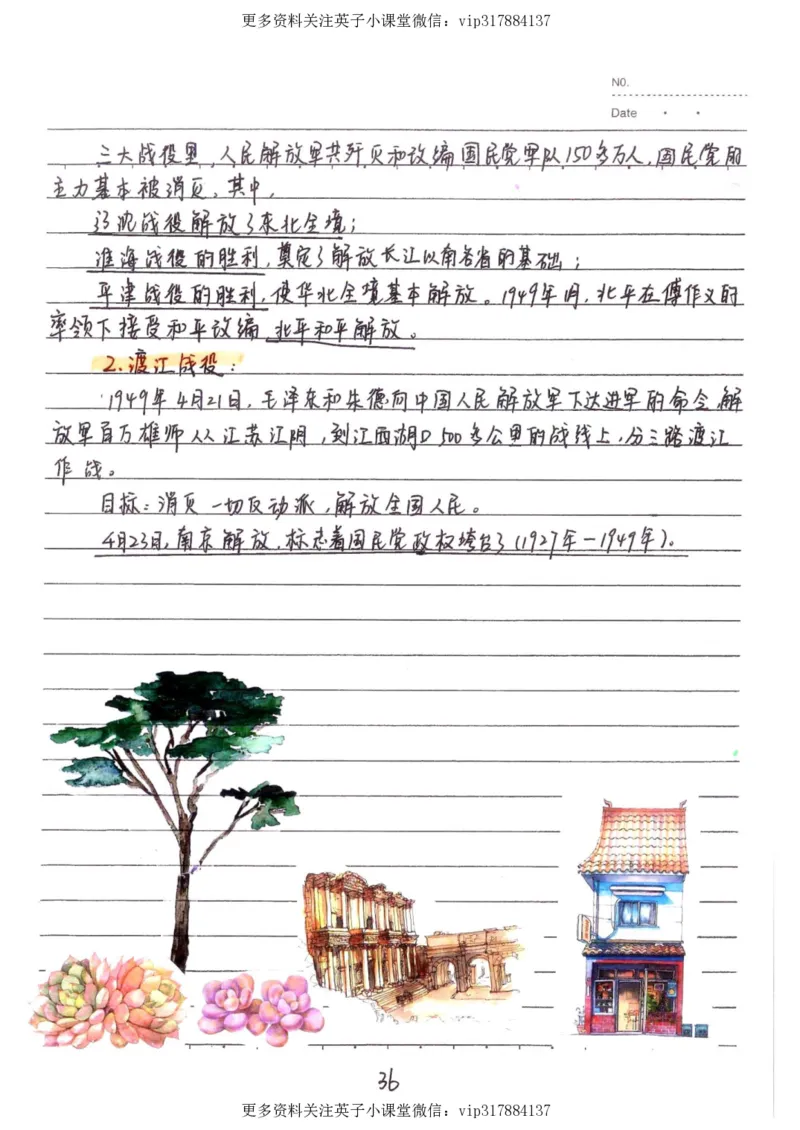 更多资料关注英子小课堂微信：vip317884137
NO.
Date
三大战役里，人民解放军共歼灭和改编国民党军队150多万人，国民党的
主力基本被消灭，其中，
辽沈战役解放了东北全境；
淮海战役的胜利，奠定了解放长江以南各省的基础；
平津战役的胜利，使华北全境基本解放。1949年1月，北平在傅作义的
率领下接受和平改编，北平和平解放。
2.渡江战役：
1949年4月21日，毛泽东和朱德向中国人民解放军下达进军的命令，解
放军百万雄师从江苏江阴，到江西湖口500多公里的战线上，分三路渡江
作战。
目标：消灭一切反动派，解放全国人民。
4月23日，南京解放，标志着国民党政权垮台了(1927年－1949年)。
36
更多资料关注英子小课堂微信：vip317884137